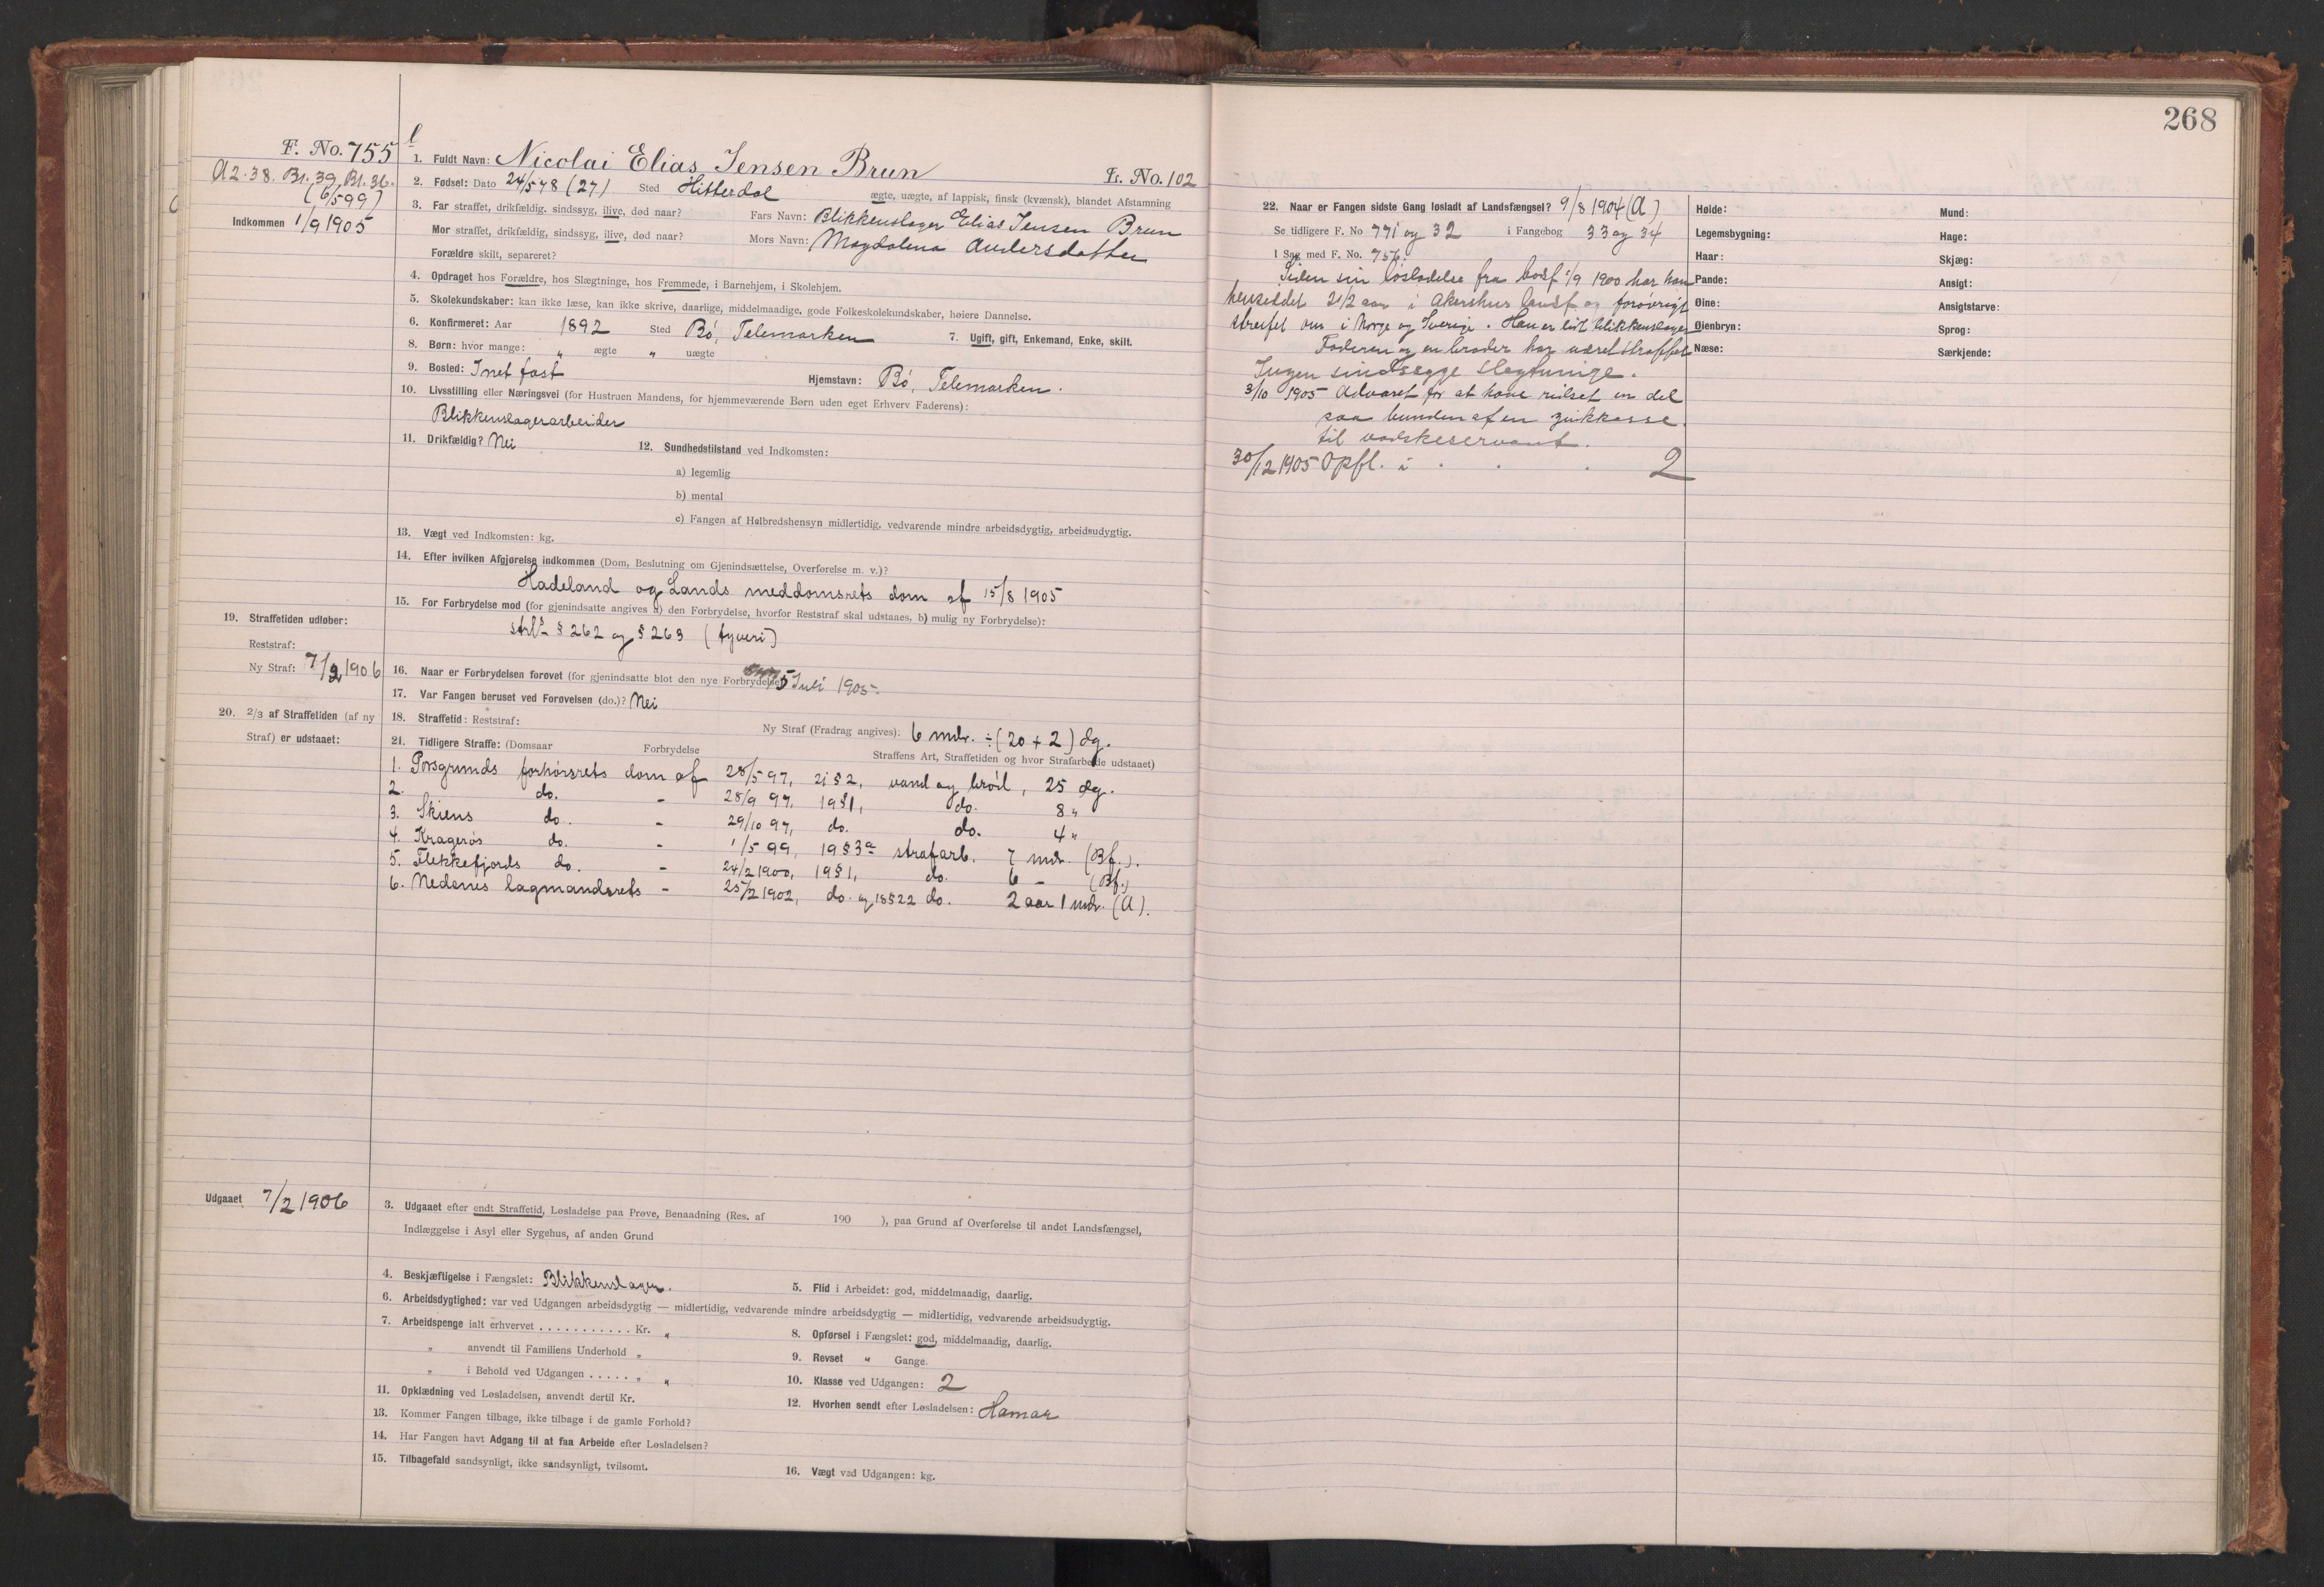 268
F. No. 755
A2·38. Br. 39, Bl. 36.
(6/5 99)
Indkommen 1/9 1905
1. Fuldt Navn: Nicolai Elias Jensen Brun
Lr. No. 102
2. Fødsel: Dato 24/5 78 (27) Sted Hitterdal ægte, uægte, af lappisk, finsk (kvænsk), blandet Afstamning
3. Far straffet, drikfældig, sindssyg, ilive, død naar? Fars Navn: Blikkenslager Elias Jensen Brun
Mor straffet, drikfældig, sindssyg, ilive, død naar? Mors Navn: Magdalena Andersdatter
Forældre skilt, separeret?
4. Opdraget hos Forældre, hos Slægtninge, hos Fremmede, i Barnehjem, i Skolehjem.
5. Skolekundskaber: kan ikke læse, kan ikke skrive, daarlige, middelmaadige, gode Folkeskolekundskaber, høiere Dannelse.
6. Konfirmeret: Aar 1892 Sted Bö, Telemarken 7. Ugift, gift, Enkemand, Enke, skilt.
8. Børn: hvor mange: " ægte " uægte
9. Bosted: Intet fast Hjemstavn: Bö, Telemarken.
10. Livsstilling eller Næringsvei (for Hustruen Mandens, for hjemmeværende Børn uden eget Erhverv Faderens):
Blikkenslagerarbeider
11. Drikfældig? Nei 12. Sundhedstilstand ved Indkomsten:
a) legemlig
b) mental
c) Fangen af Helbredshensyn midlertidig, vedvarende mindre arbeidsdygtig, arbeidsudygtig.
13. Vægt ved Indkomsten: kg.
14. Efter hvilken Afgjørelse indkommen (Dom, Beslutning om Gjenindsættelse, Overførelse m. v.)?
Hadeland og Lands meddomsrets dom af 15/8 1905
15. For Forbrydelse mod (for gjenindsatte angives a) den Forbrydelse, hvorfor Reststraf skal udstaaes, b) mulig ny Forbrydelse):
strl.s § 262 og § 263 (tyveri)
19. Straffetiden udløber:
Reststraf:
Ny Straf: 7/2 1906
16. Naar er Forbrydelsen forøvet (for gjenindsatte blot den nye Forbrydelse) 5 Juli 1905.
17. Var Fangen beruset ved Forøvelsen (do.)? Nei
20. 2/3 af Straffetiden (af ny
Straf) er udstaaet:
18. Straffetid: Reststraf: Ny Straf (Fradrag angives): 6 mdr. ÷ (20 + 2) dg.
21. Tidligere Straffe: (Domsaar Forbrydelse Straffens Art, Straffetiden og hvor Strafarbeide udstaaet)
1. Porsgrunds forhörsrets dom af 28/5 97, 21 § 2, vand og bröd, 25 dg.
2. do. - 28/9 97, 19 § 1, do. 8 "
3. Skiens do. - 29/10 97, do. do. 4 "
4. Kragerös do. - 1/5 99, 19 § 3 a strafarb. 7 mdr. (Bf.).
5. Flekkefjords do. - 24/2 1900, 19 § 1, do. 6 - (Bf.)
6. Nedenes lagmandsrets - 25/2 1902, do. og 18 § 22 do. 2 aar 1 mdr. (A).
Udgaaet 7/2 1906
3. Udgaaet efter endt Straffetid, Løsladelse paa Prøve, Benaadning (Res. af 190 ), paa Grund af Overførelse til andet Landsfængsel,
Indlæggelse i Asyl eller Sygehus, af anden Grund
4. Beskjæftigelse i Fængslet: Blikkenslager. 5. Flid i Arbeidet: god, middelmaadig, daarlig.
6. Arbeidsdygtighed: var ved Udgangen arbeidsdygtig — midlertidig, vedvarende mindre arbeidsdygtig — midlertidig, vedvarende arbeidsudygtig.
7. Arbeidspenge ialt erhvervet . . . . . . . . . . . Kr. " 8. Opførsel i Fængslet: god, middelmaadig, daarlig.
" anvendt til Familiens Underhold " 9. Revset " Gange.
" i Behold ved Udgangen . . . . . " " 10. Klasse ved Udgangen: 2
11. Opklædning ved Løsladelsen, anvendt dertil Kr. 12. Hvorhen sendt efter Løsladelsen: Hamar
13. Kommer Fangen tilbage, ikke tilbage i de gamle Forhold?
14. Har Fangen havt Adgang til at faa Arbeide efter Løsladelsen?
15. Tilbagefald sandsynligt, ikke sandsynligt, tvilsomt. 16. Vægt ved Udgangen: kg.
22. Naar er Fangen sidste Gang løsladt af Landsfængsel? 9/8 1904 (A)
Se tidligere F. No 771 og 32 i Fangebog 33 og 34
I Sag med F. No. 756.
Siden sin lösladelse fra bodsf 1/9 1900 har han
hensiddet 2 1/2 aar i Akershus landsf og forövrigt
streifet om i Norge og Sverige. Han er blikkenslager
Faderen og en broder har været straffet
Ingen sindssyge slegtninge.
3/10 1905 Advaret for at have ridset en del
paa bunden af en zinkkasse
til vaskeservant.
30/12 1905 Opfl. i . . . 2
Høide:
Legemsbygning:
Haar:
Pande:
Øine:
Øienbryn:
Næse:
Mund:
Hage:
Skjæg:
Ansigt:
Ansigtstarve:
Sprog:
Særkjende: